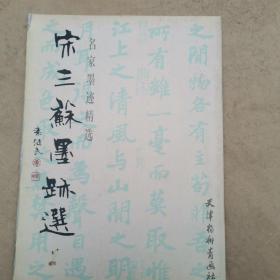 之間物各
所有雖一毫而莫取惟
江上之清風與山間之明
名家墨迹精选
宋三蘇墨跡選
天津杨柳青画社